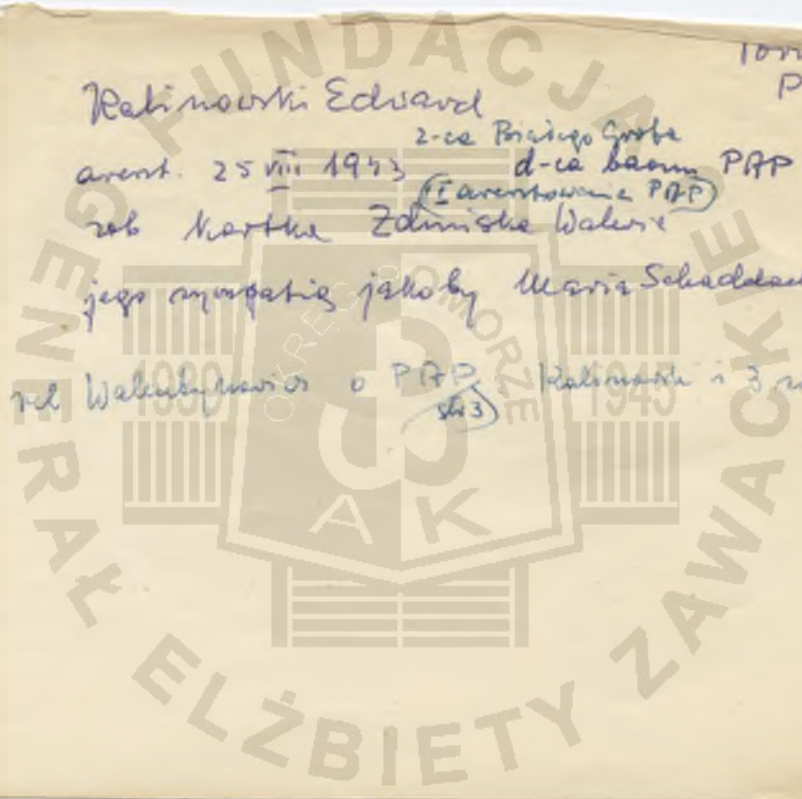 Toru
P
Kalinowski Edward
z-ca Białego Grota
arerszt. 25 VIII 1943 d-ca baonu PAP
II aresztowania PAP
zob kartka
jego sympatią jakoby Maria Schaddach
rel o PAP Kalinowski i 3
str 3
FUNDACJA
GENERAŁ ELŻBIETY ZAWACKIEJ
OKRĘG POMORZE
1939 1945
AK